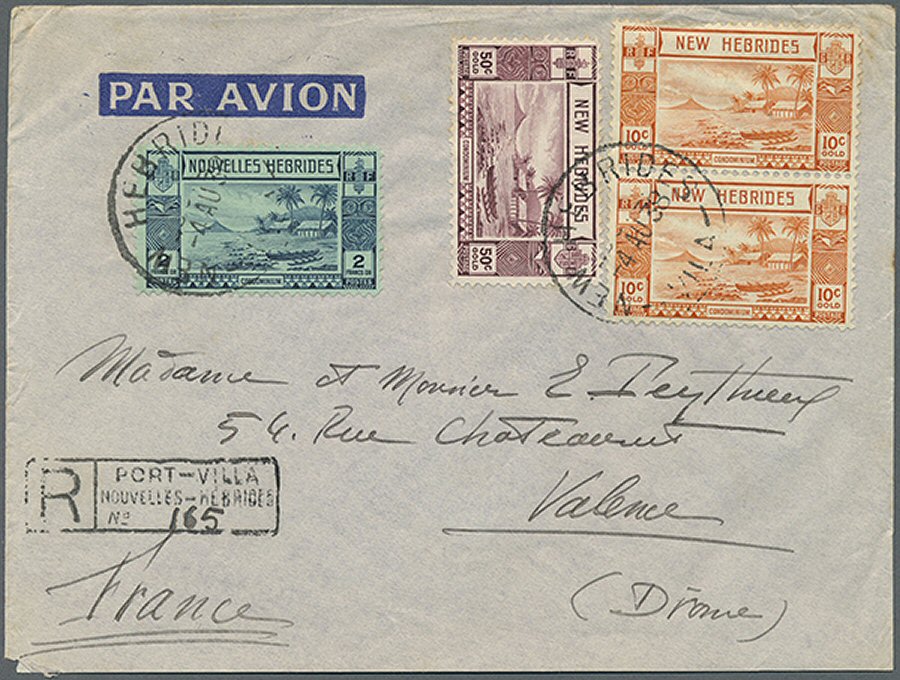 PAR AVION
NOUVELLES HEBRIDES
RF
2
FRANCS OR
2
CONDOMINIUM
50c
RF
NEW HEBRIDES
50c
GOLD
NEW HEBRIDES
RF
10c
GOLD
CONDOMINIUM
10c
GOLD
POSTAGE
NEW HEBRIDES
10c
GOLD
CONDOMINIUM
10c
GOLD
POSTAGE
HEBRIDES
4 AU
NEW HEBRIDES
4 AU 38
VILA
Madame et Monsieur E.
54. Rue
Valence
(Drome)
R
PORT-VILLA
NOUVELLES-HEBRIDES
No 165
France